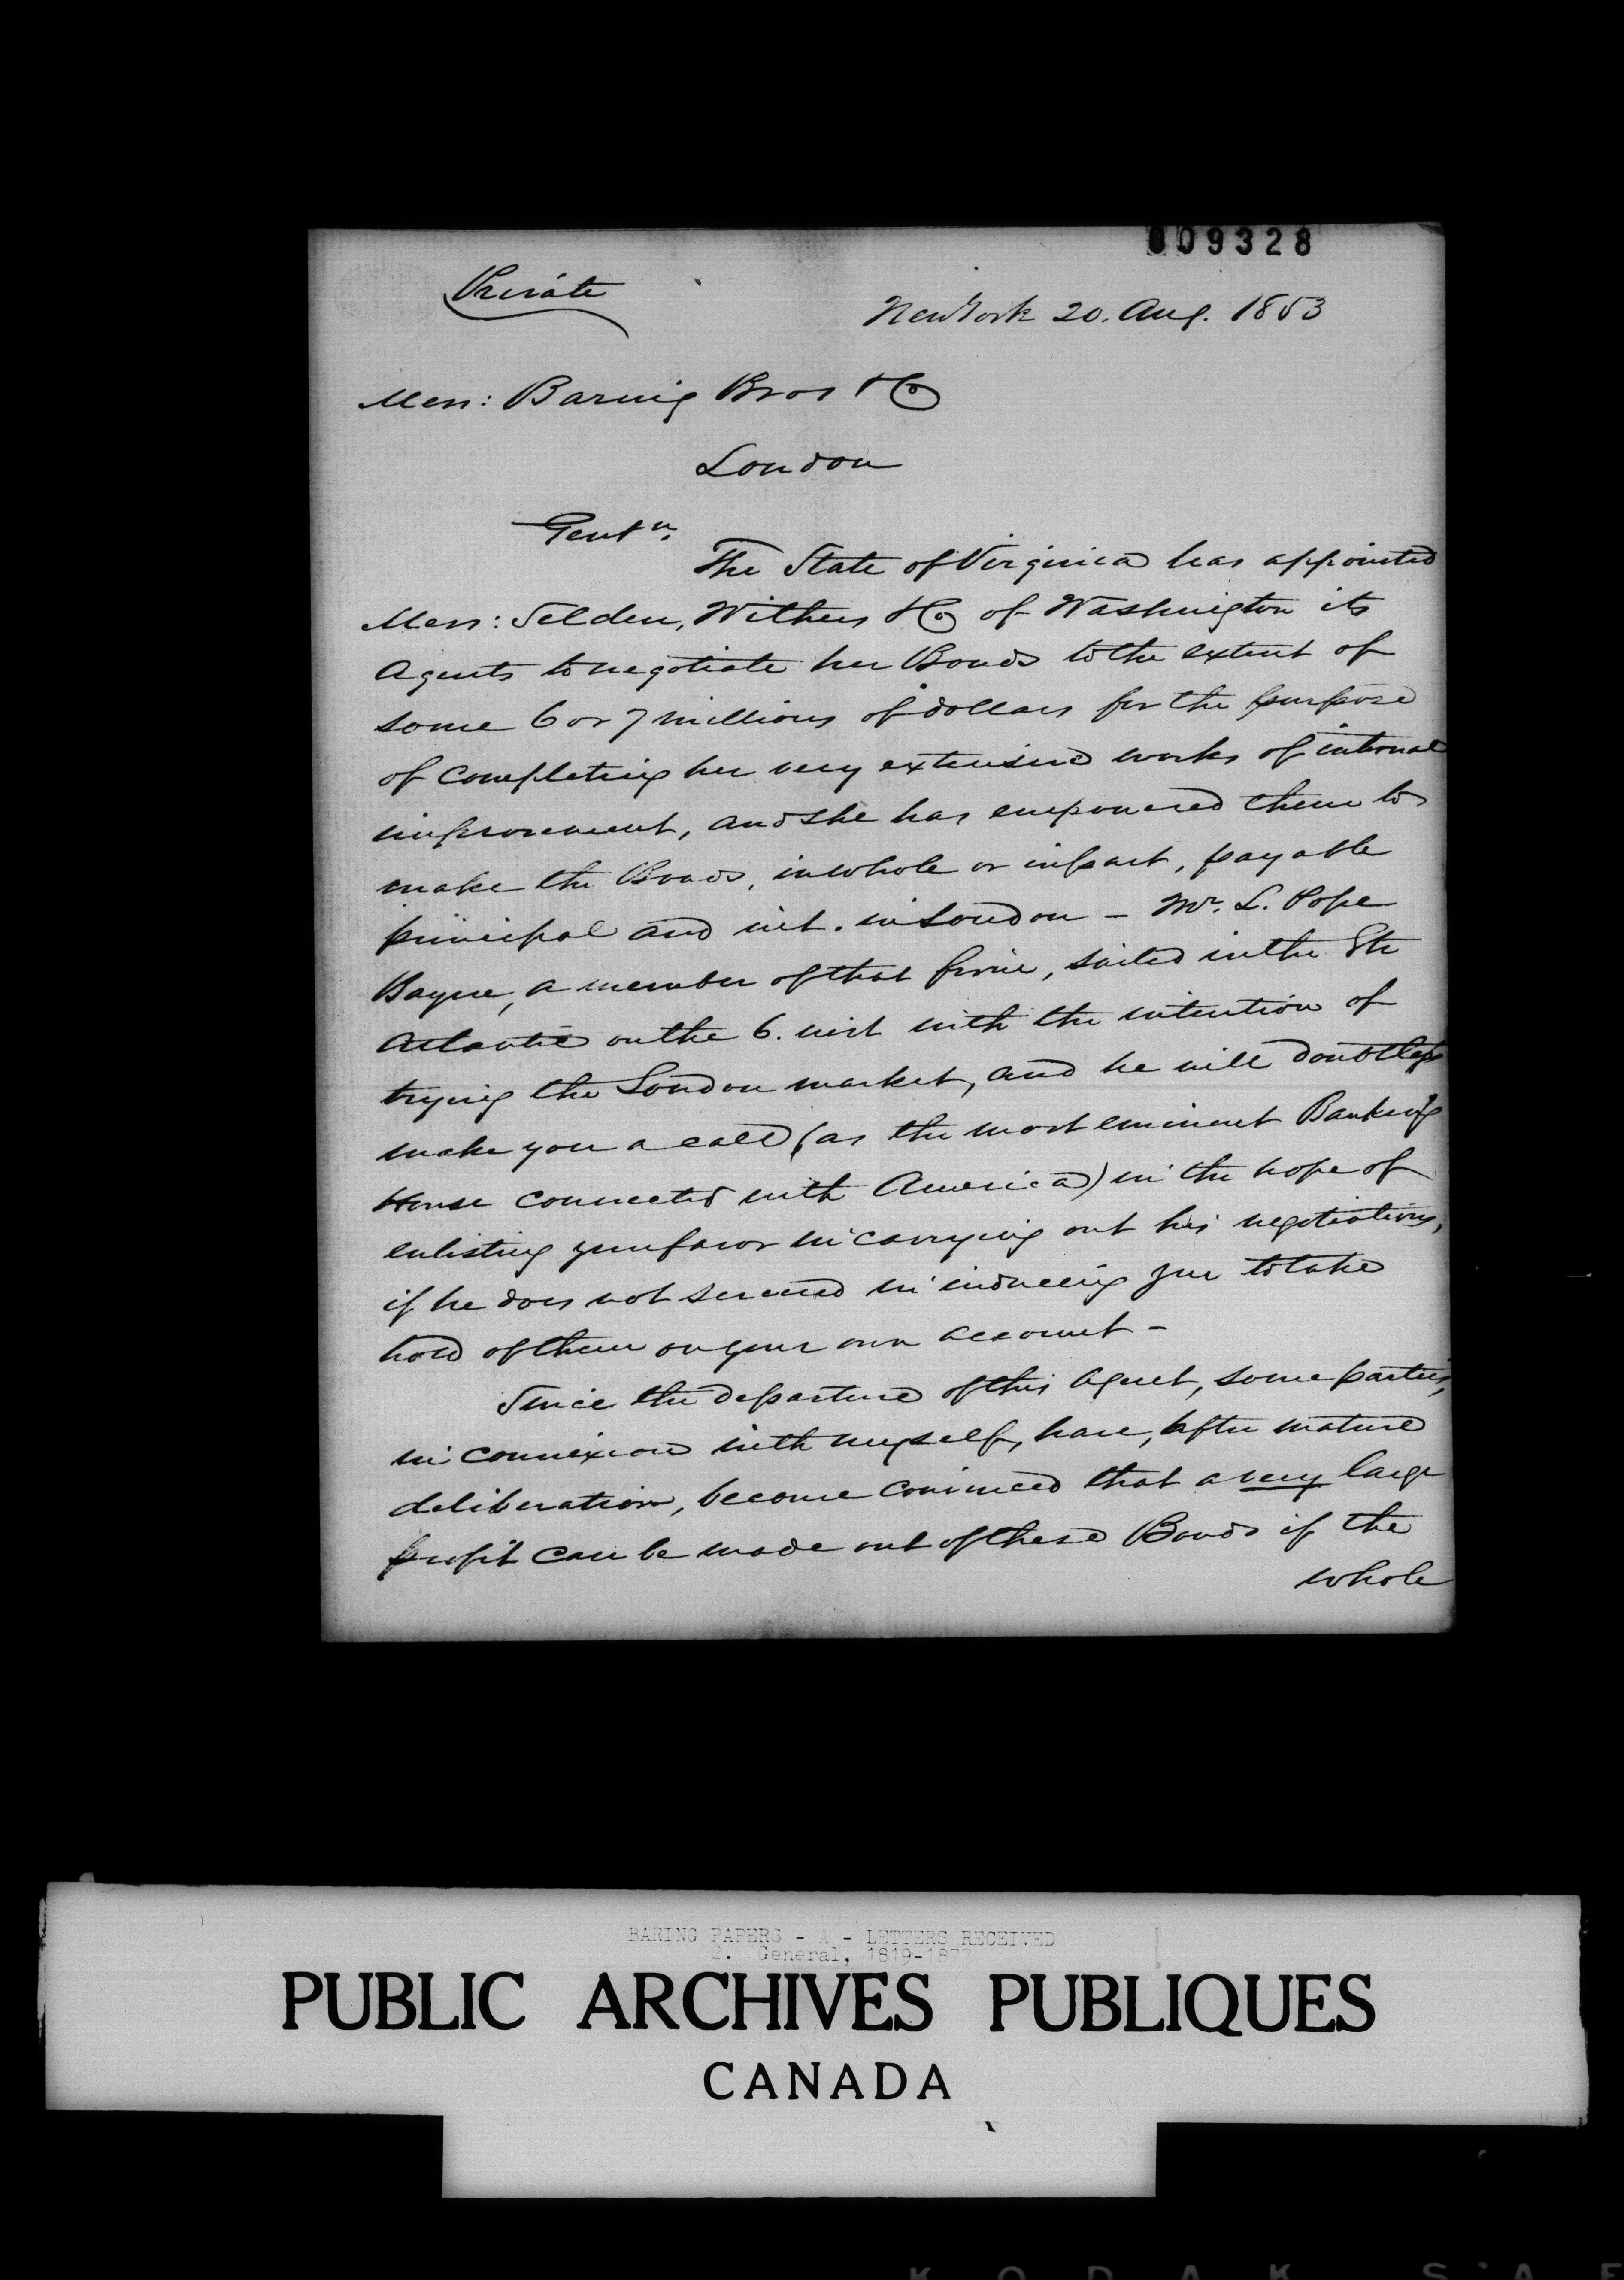 009328
Private
New York 20. Aug. 1853
Mess: Baring Bros & Co
London
Gentn.
The State of Virginia has appointed
Mess: Selden, Withers & Co of Washington its
Agents to negotiate her Bonds to the extent of
some 6 or 7 millions of dollars for the purpose
of completing her very extensive works of internal
improvement, and she has empowered them to
make the Bonds, in whole or in part, payable
principal and int. in London - Mr. L. Pope
Bayne, a member of that firm, sailed in the Str
Atlantic on the 6. inst with the intention of
trying the London market, and he will doubtless
make you a call (as the most eminent Banking
House connected with America) in the hope of
enlisting your favor in carrying out his negotiations,
if he does not succeed in inducing you to take
hold of them on your own account -
Since the departure of this Agent, some parties,
in connexion with myself, have, after mature
deliberation, become convinced that a very large
profit can be made out of these Bonds if the
whole
BARING PAPERS - A - LETTERS RECEIVED
2. General, 1819-1877
PUBLIC ARCHIVES PUBLIQUES
CANADA
KODAK S'AF